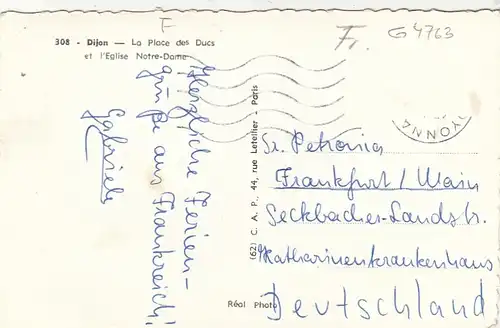 F
308 - Dijon — La Place des Ducs
et l'Eglise Notre-Dame
Fr.
G 4763
Herzliche Ferien-
grüße aus Frankreich!
Gabriele
(62) C. A. P., 44, rue Letellier - Paris
YONNA
Sr. Petronia
Frankfurt/Main
Seckbacher-Landstr.
Katharinenkrankenhaus
Deutschland
Réal Photo